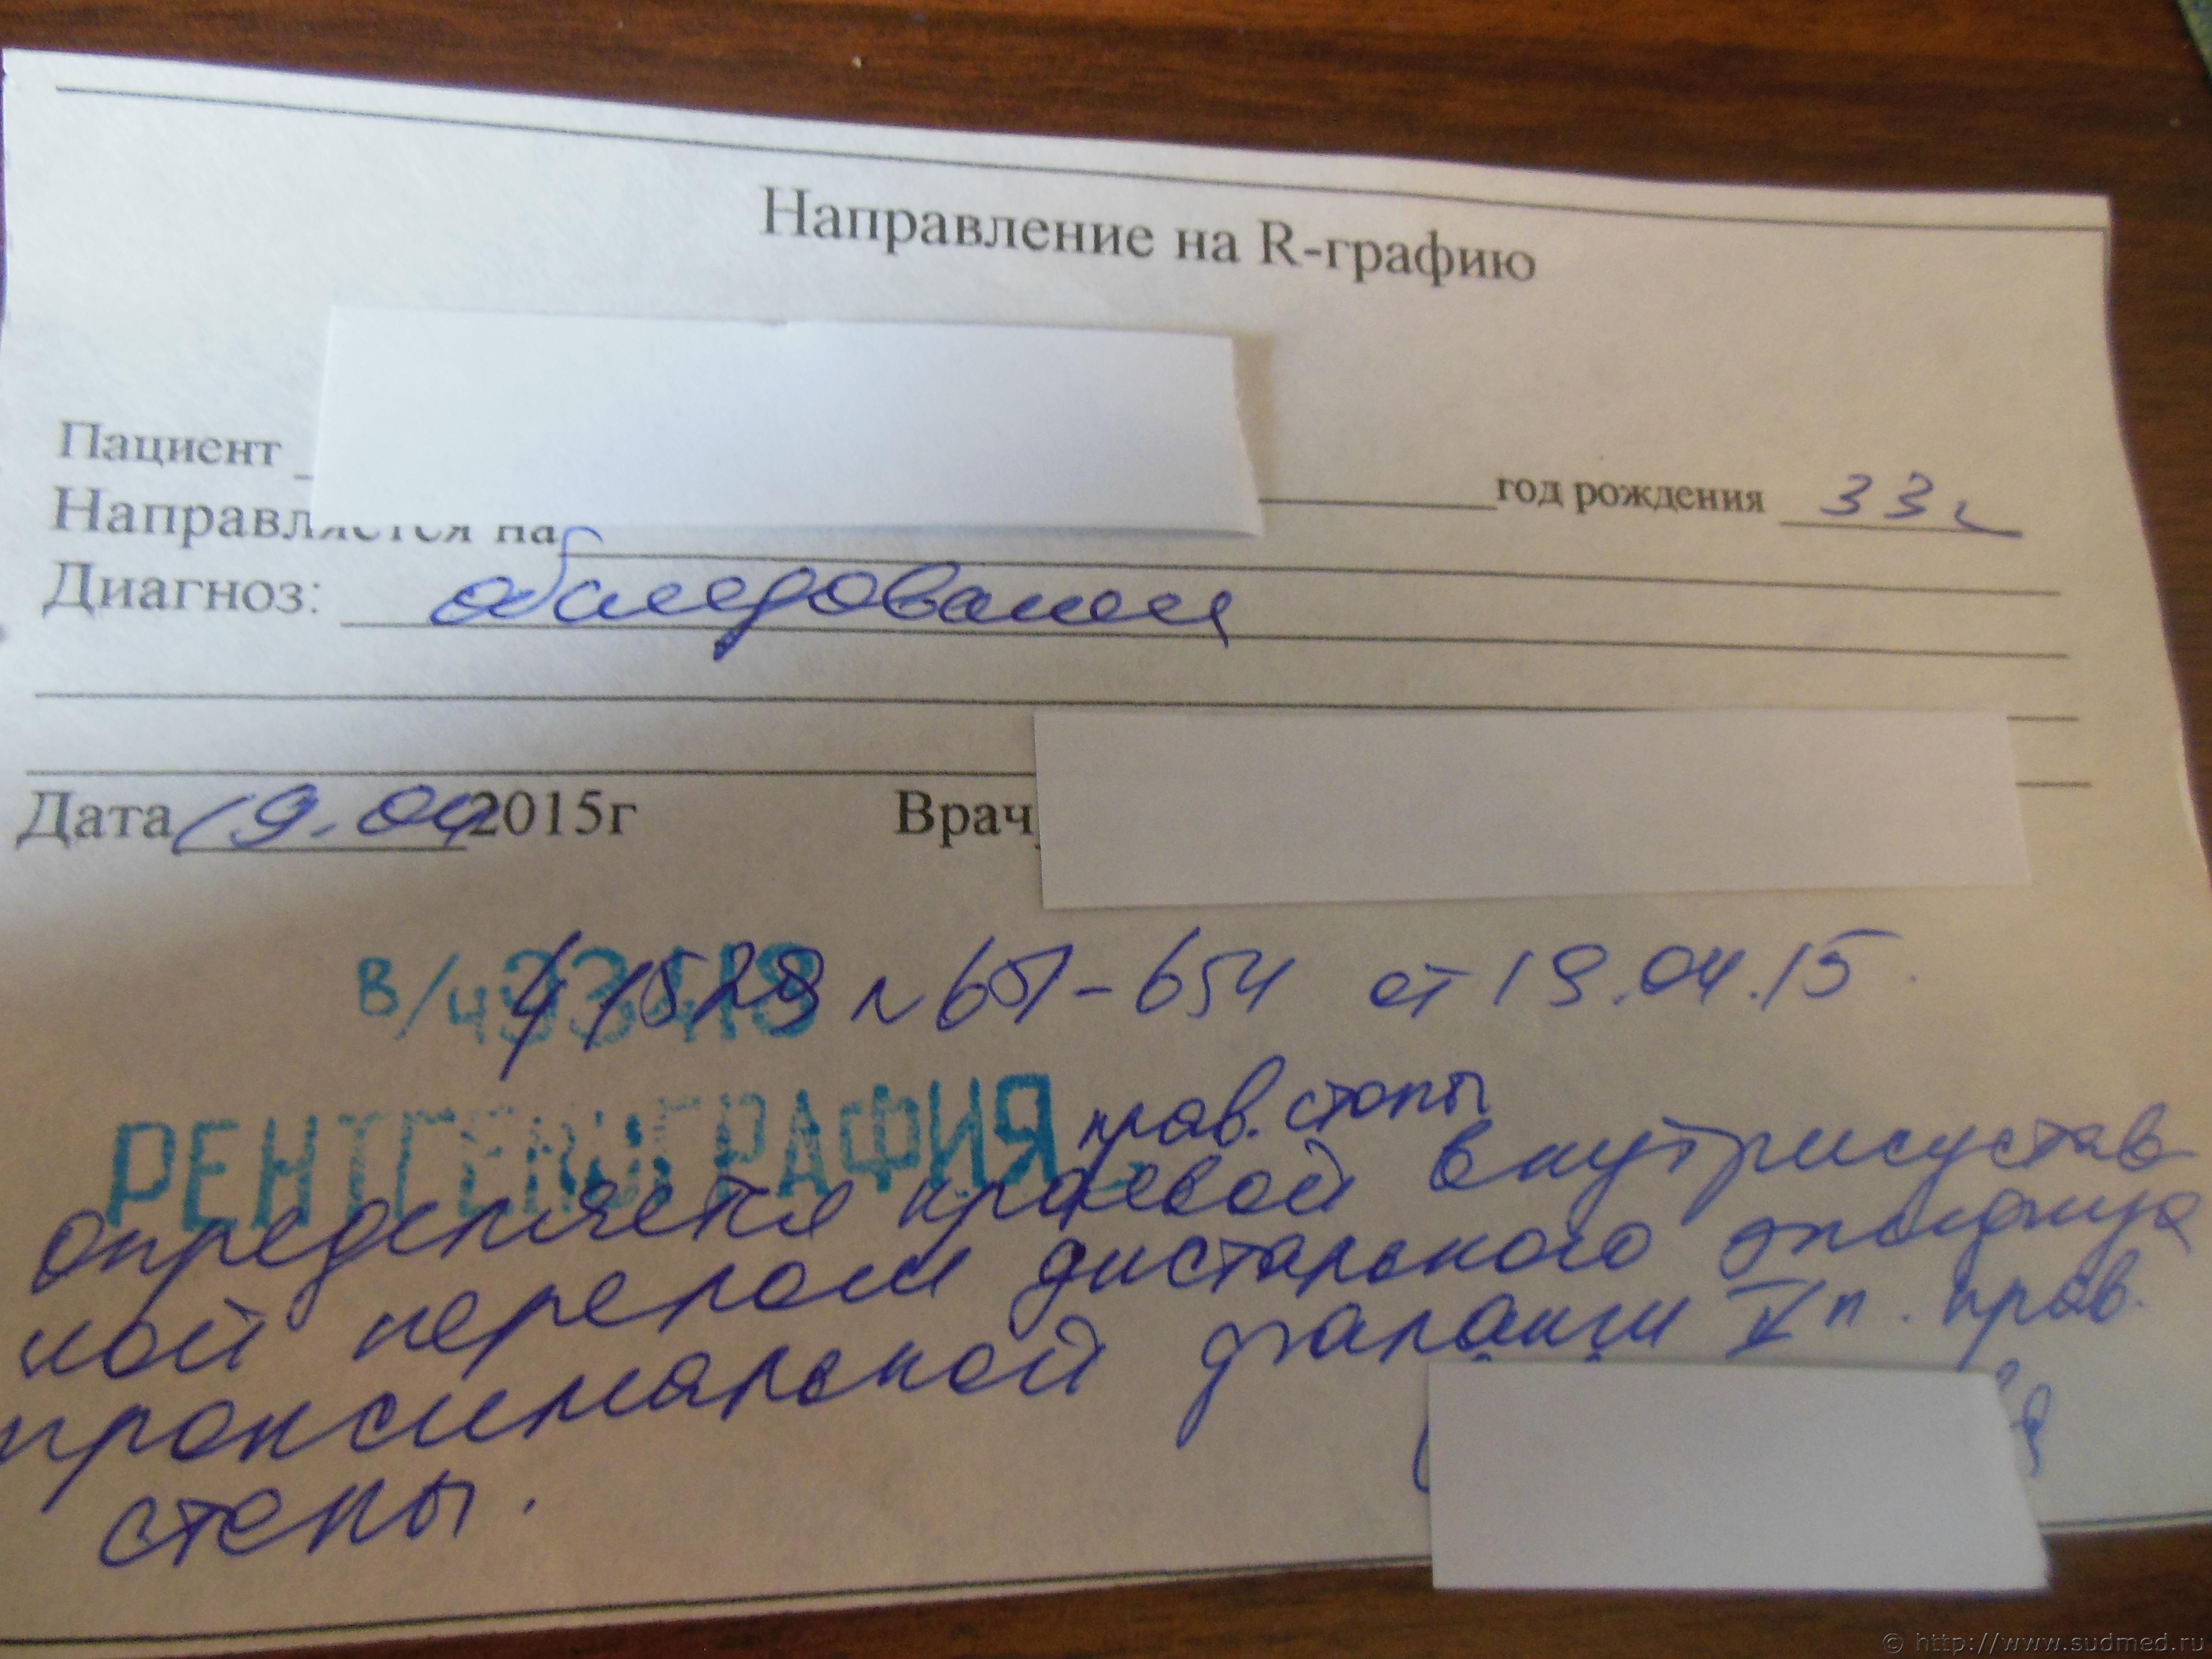 Направление на R-графию
Пациент год рождения 33г
Направляется на
Диагноз: обследование
Дата 19.04 2015г Врач
В/Ч 41529 N 651-654 от 19.04.15.
РЕНТГЕНОГРАФИЯ прав. стопы
определяется краевой внутрисустав
ной перелом дистального эпифиза
проксимальной фаланги V п. прав.
стопы.
© http://www.sudmed.ru